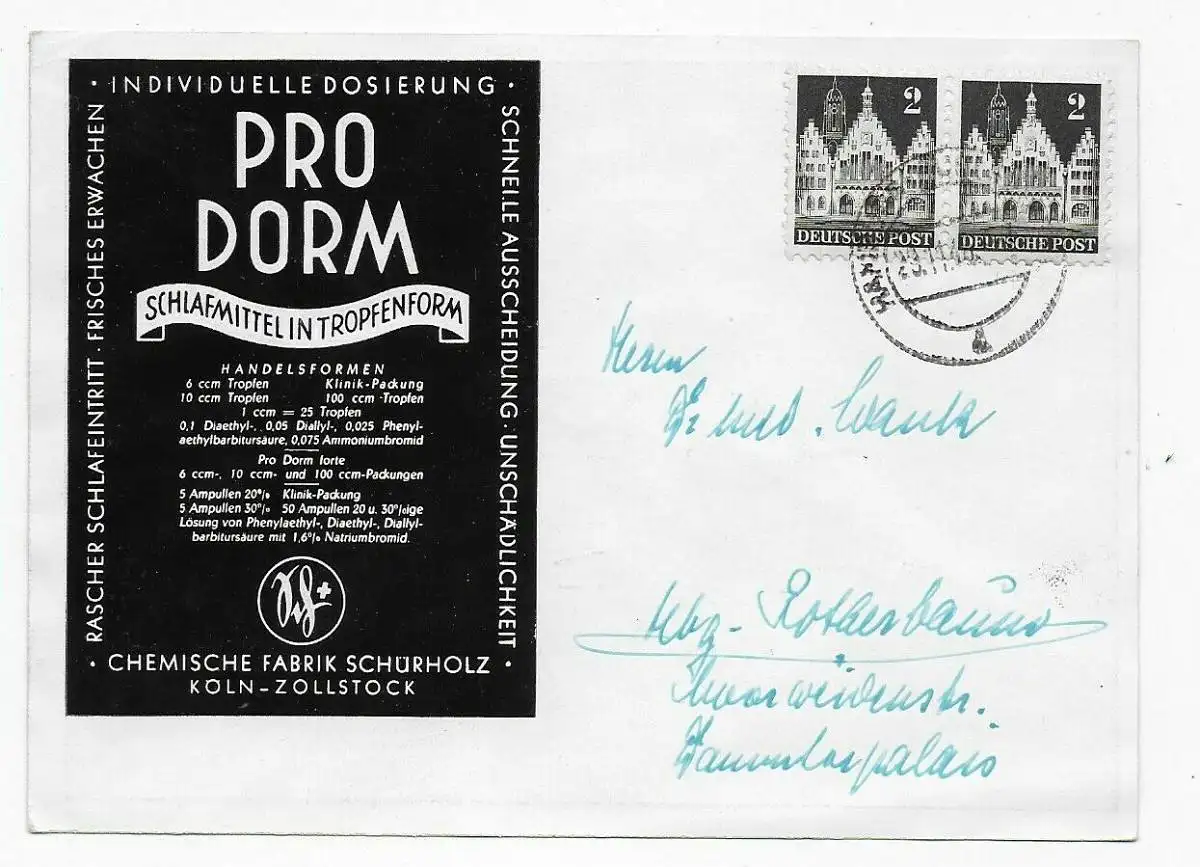 · INDIVIDUELLE DOSIERUNG ·
RASCHER SCHLAFEINTRITT · FRISCHES ERWACHEN
SCHNELLE AUSSCHEIDUNG · UNSCHÄDLICHKEIT ·
PRO
DORM
SCHLAFMITTEL IN TROPFENFORM
HANDELSFORMEN
6 ccm Tropfen Klinik-Packung
10 ccm Tropfen 100 ccm -Tropfen
1 ccm = 25 Tropfen
0,1 Diaethyl-, 0,05 Diallyl-, 0,025 Phenyl-
aethylbarbitursäure, 0,075 Ammoniumbromid
Pro Dorm forte
6 ccm-, 10 ccm- und 100 ccm-Packungen
5 Ampullen 20% Klinik-Packung
5 Ampullen 30% 50 Ampullen 20 u. 30%ige
Lösung von Phenylaethyl-, Diaethyl-, Diallyl-
barbitursäure mit 1,6% Natriumbromid.
Sch
· CHEMISCHE FABRIK SCHÜRHOLZ ·
KÖLN-ZOLLSTOCK
2 2
DEUTSCHE POST DEUTSCHE POST
Herrn
Dr med.
Hbg- Rotherbaum
Moorweidenstr.
Dammtorpalais